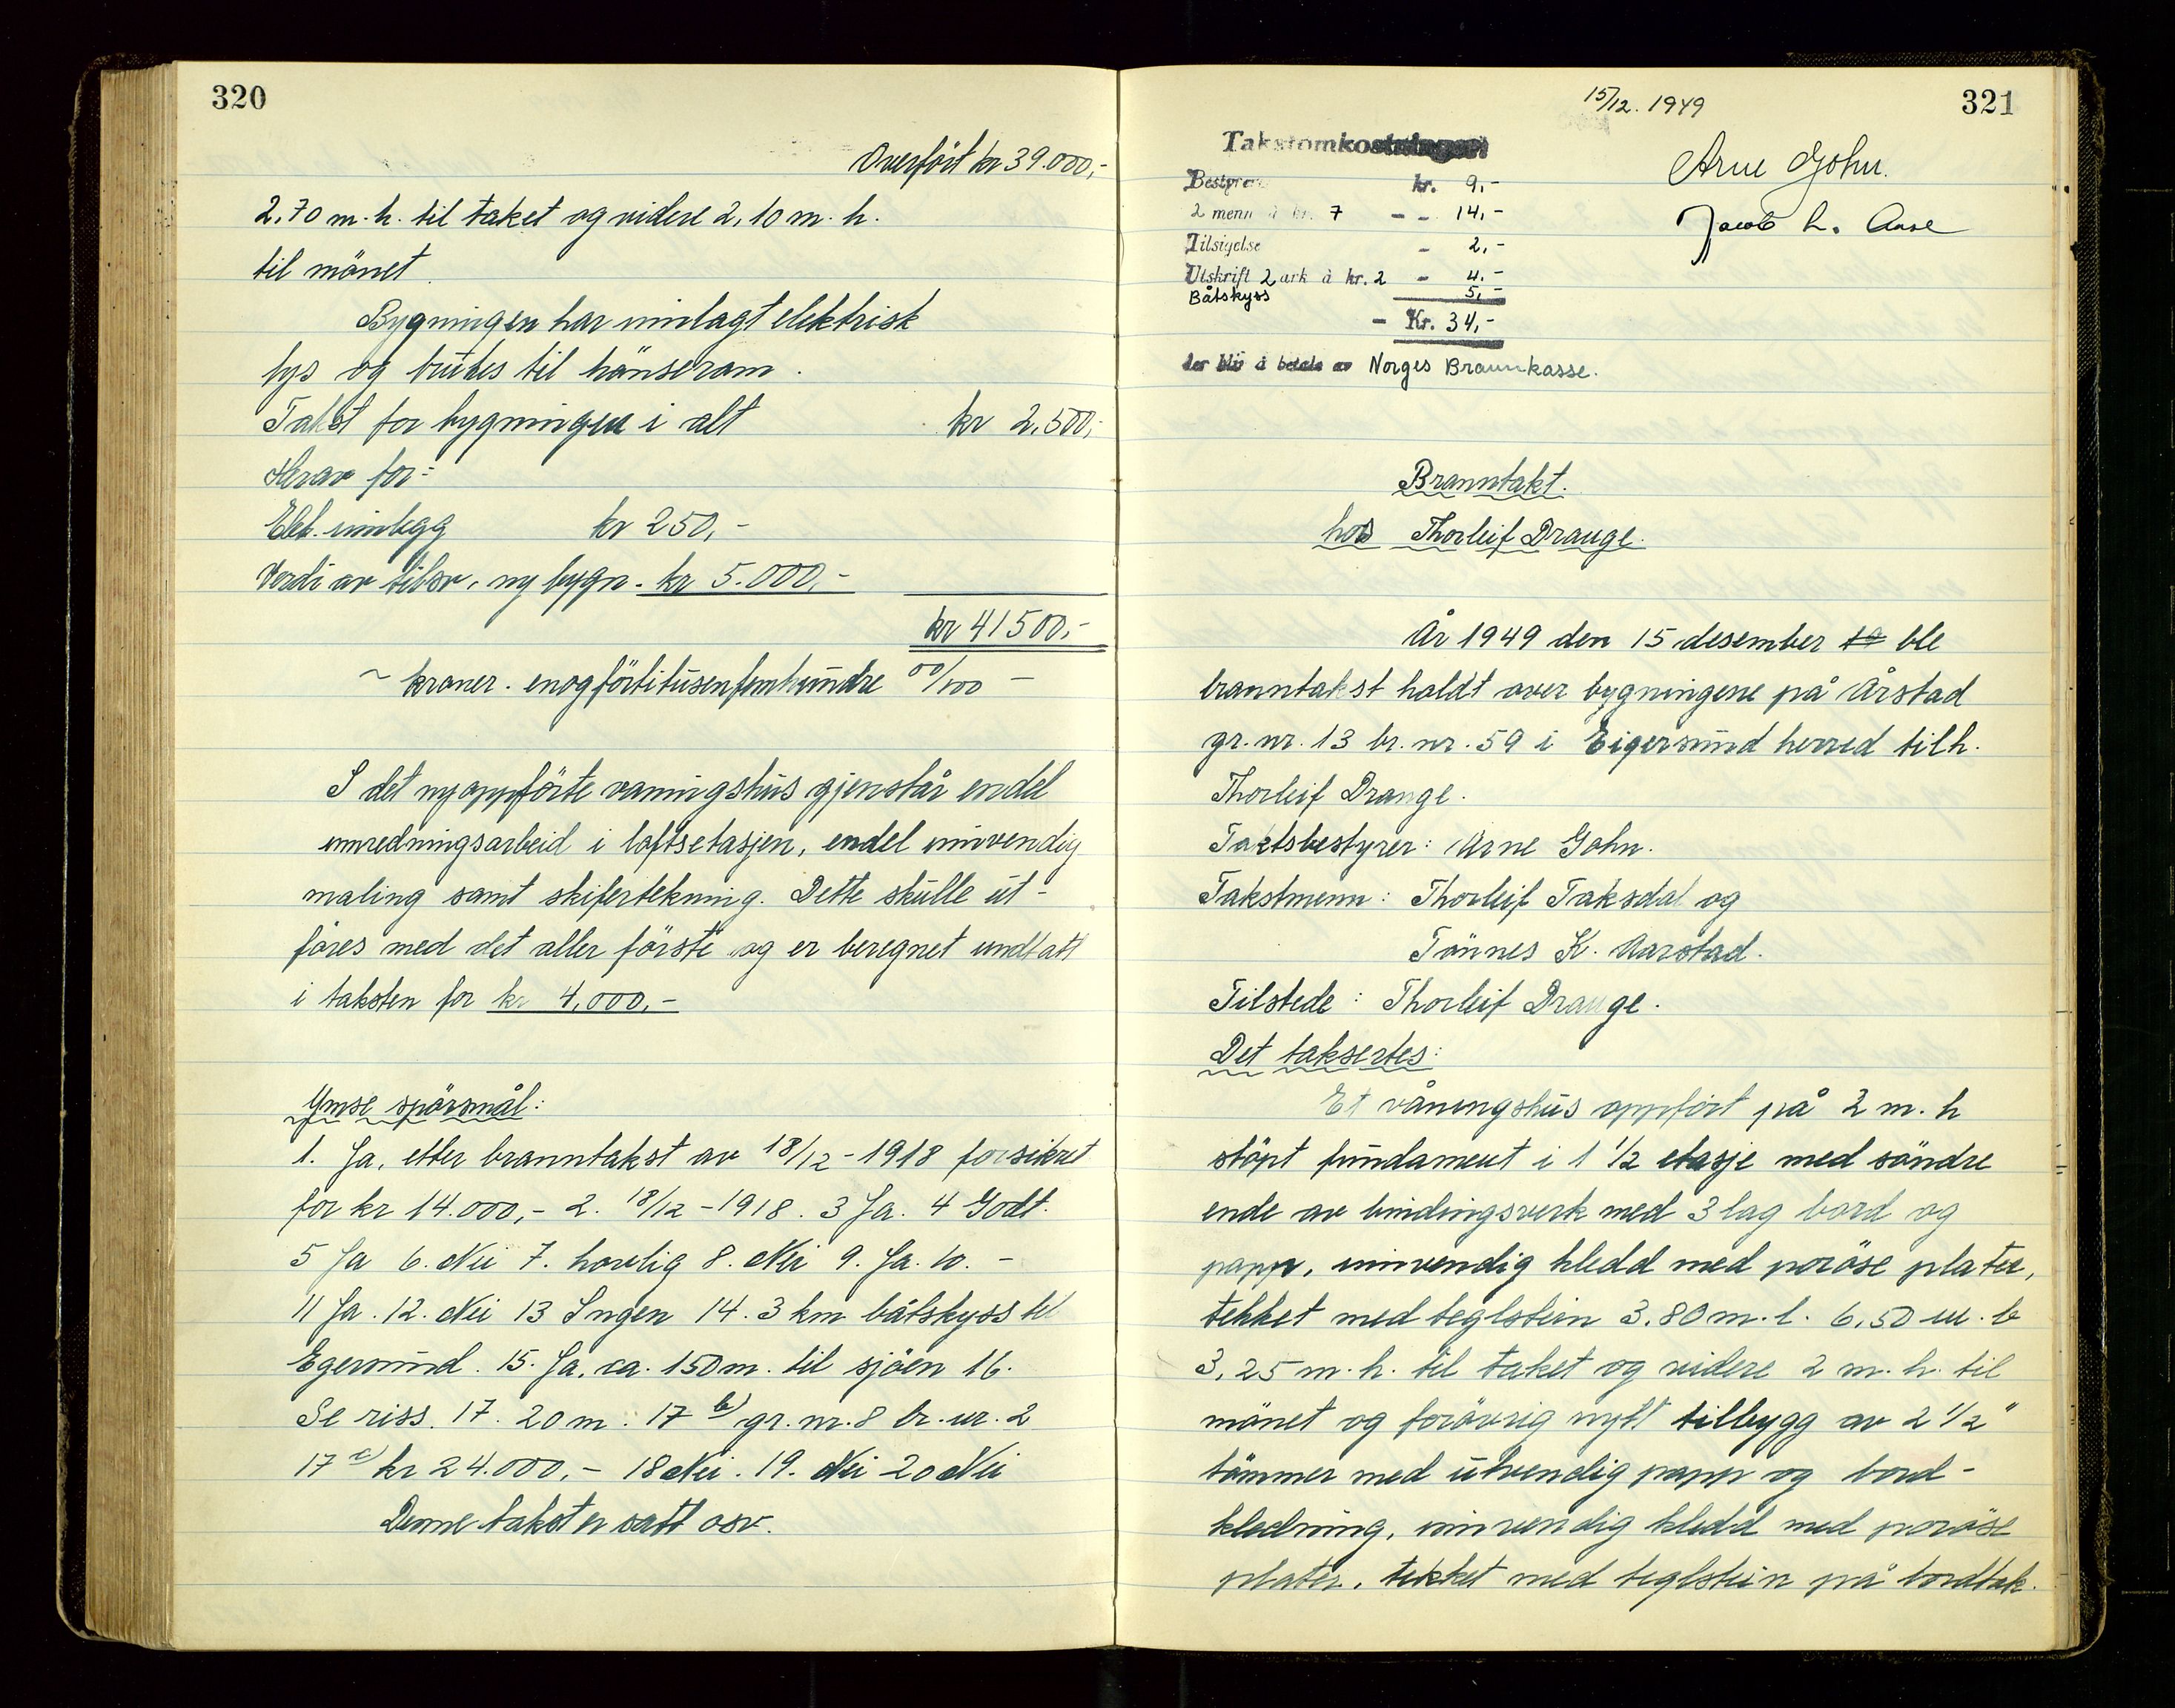 320
Overfört kr 39.000,-
2,70 m. h. til taket og videre 2,10 m. h.
til mönet.
Bygningen har innlagt elektrisk
lys og brukes til hönserom.
Takst for bygningen i alt kr 2.500,-
Herav for:
Elek. innlegg kr 250,-
Verdi av tilsv. ny bygn. kr 5.000,-
kr 41500,-
~ kroner enogförtitusenfemhundre 00/100 -
I det nyoppförte våningshus gjenstår endel
innredningsarbeid i loftsetasjen, endel innvendig
maling samt skifertekning. Dette skulle ut-
föres med det aller förste og er beregnet undtatt
i taksten for kr 4.000,-
Ymse spörsmål:
1. Ja, etter branntakst av 18/12-1918 forsikret
for kr 14.000,- 2. 18/12-1918. 3 Ja. 4 Godt.
5 Ja 6. Nei 7. hovlig 8. Nei 9. Ja. 10. -
11 Ja. 12. Nei 13 Ingen 14. 3 km båtskyss til
Egersund. 15. Ja, ca. 150 m. til sjöen 16.
Se riss. 17. 20 m. 17 b) gr. nr. 8 br. nr. 2
17 c) kr 24.000,- 18 Nei. 19. Nei 20 Nei
Denne takst er satt osv.
15/12. 1949
321
Takstomkostninger
Arne Gohn.
Bestyrer kr. 9,-
2 menn à kr. 7 - - 14,-
Jacob L. Aase
Tilsigelse - 2,-
Utskrift 2 ark à kr. 2 - 4,-
Båtskyss 5,-
- Kr. 34,-
der blir å betale av Norges Brannkasse.
Branntakt.
hos Thorleif Drange.
År 1949 den 15 desember 19 ble
branntakst holdt over bygningene på Årstad
gr. nr. 13 br. nr. 59 i Eigersund herred tilh.
Thorleif Drange.
Taktsbestyrer: Arne Gohn.
Takstmenn: Thorleif Taksdal og
Tönnes K. Aarstad.
Tilstede: Thorleif Drange.
Det taksertes:
Et våningshus oppfört på 2 m. h
stöpt fundament i 1 1/2 etasje med söndre
ende av bindingsverk med 3 lag bord og
papp, innvendig kledd med poröse plater,
tekket med teglstein 3,80 m. l. 6,50 m. b
3,25 m. h. til taket og videre 2 m. h. til
mönet og forövrig nytt tilbygg av 2 1/2"
tömmer med utvendig papp og bord-
kledning, innvendig kledd med poröse
plater, tekket med teglstein på bordtak.